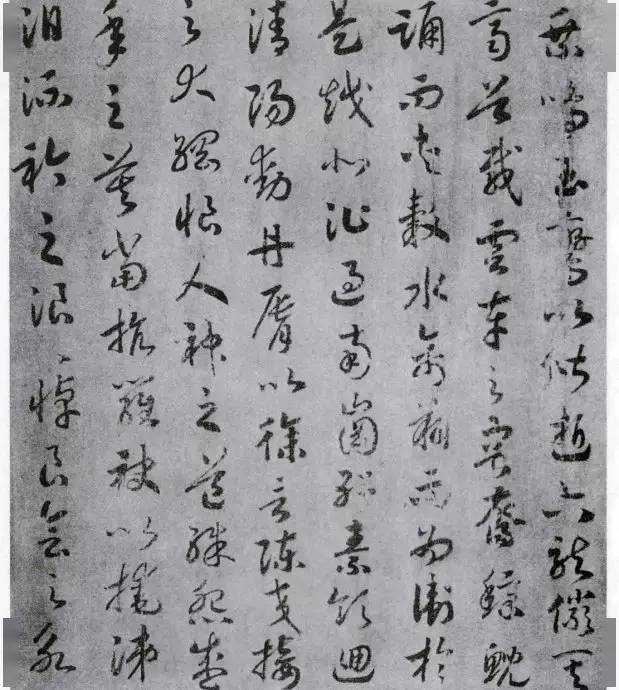 乘鳴玉鸞以偕逝六龍儼其
齊首載雲車之容裔鯨鯢
踊而夾轂水禽翔而為衛於
是越北沚過南岡紆素領迴
清陽動丹脣以徐言陳交接
之大綱恨人神之道殊怨盛
年之莫當抗羅袂以掩涕
泪流衿之浪〻悼良會之永